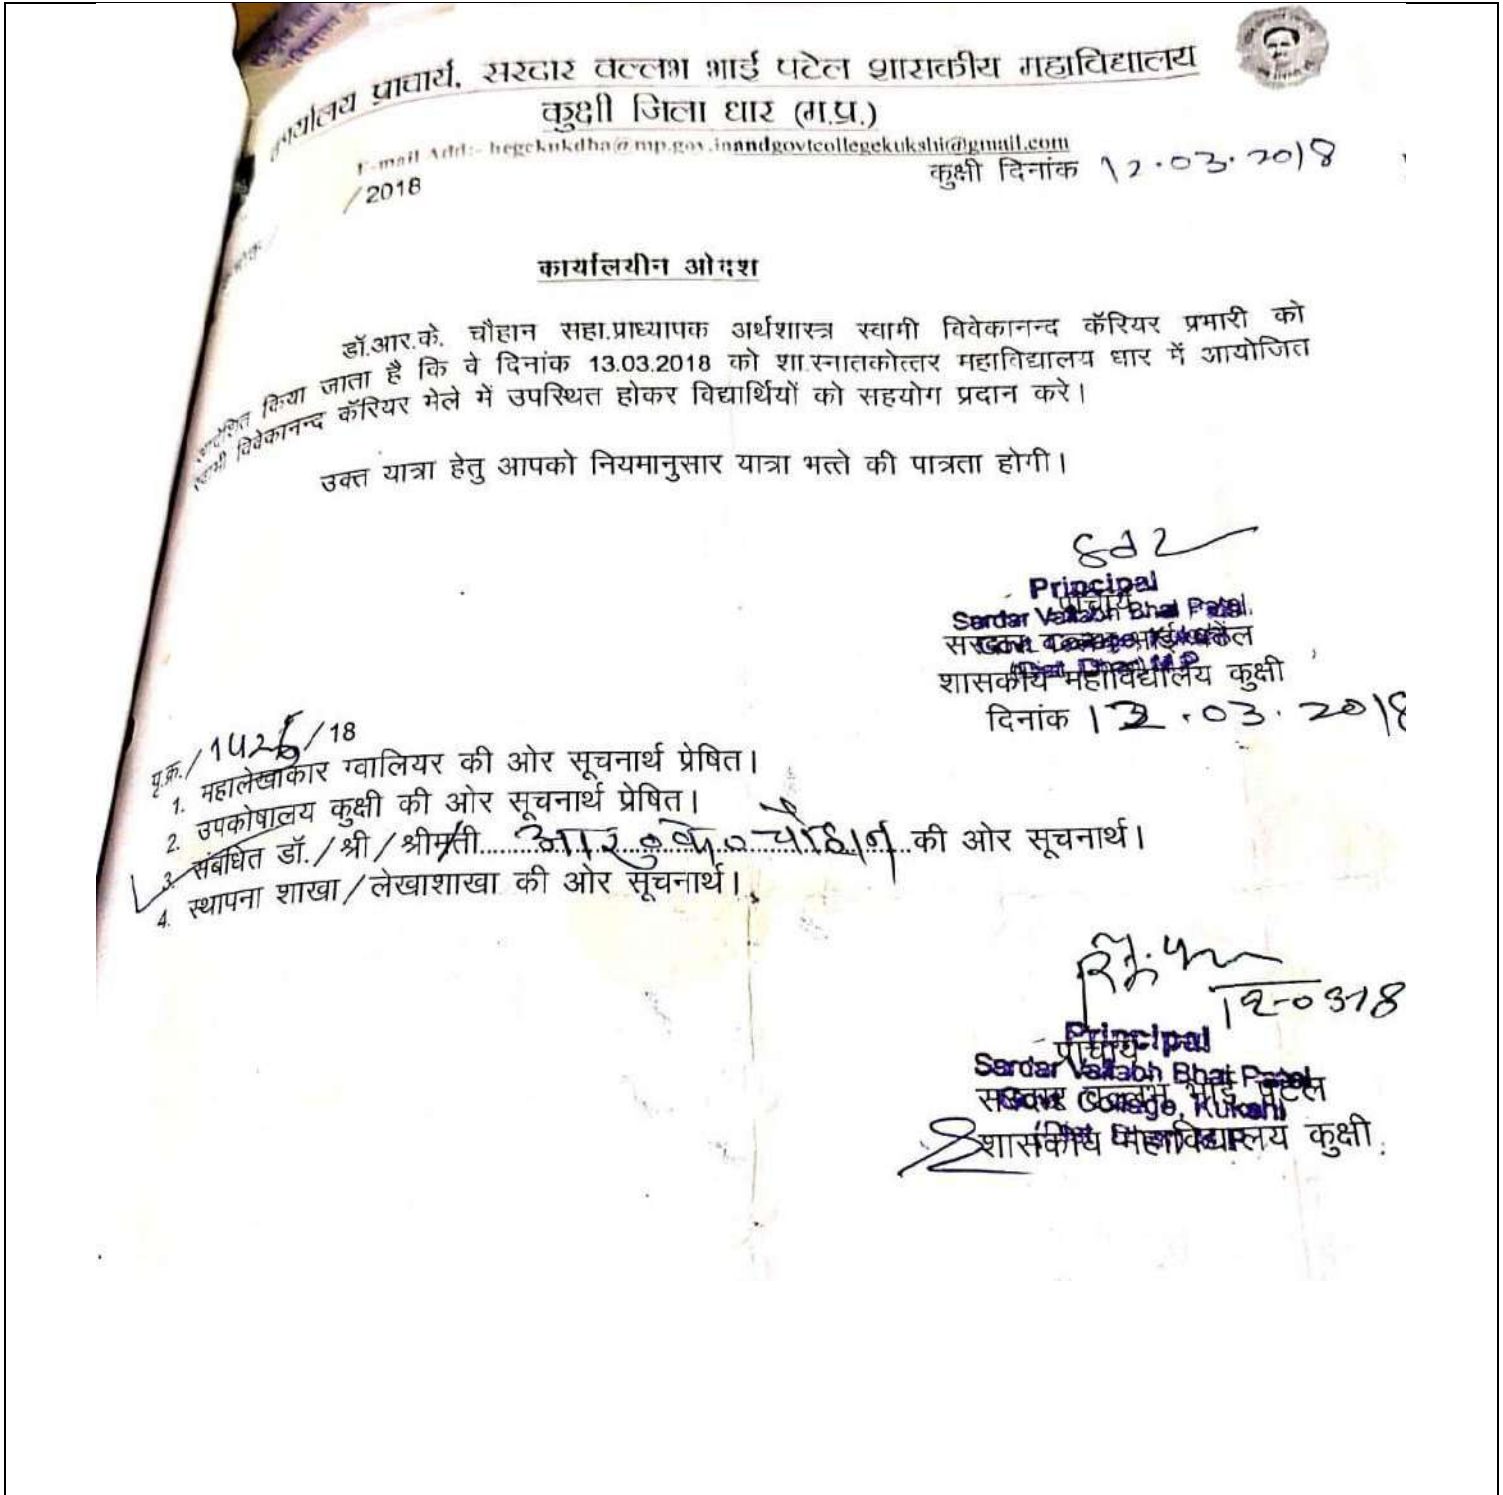 कार्यालय प्राचार्य, सरदार वल्लभ भाई पटेल शासकीय महाविद्यालय
कुक्षी जिला धार (म.प्र.)
E-mail Add:- hegckukdha@mp.gov.inandgovtcollegekukshi@gmail.com
/2018
कुक्षी दिनांक 12.03.2018
कार्यालयीन ओदश
डॉ.आर.के. चौहान सहा.प्राध्यापक अर्थशास्त्र स्वामी विवेकानन्द कॅरियर प्रभारी को
आदेशित किया जाता है कि वे दिनांक 13.03.2018 को शा.स्नातकोत्तर महाविद्यालय धार में आयोजित
स्वामी विवेकानन्द कॅरियर मेले में उपस्थित होकर विद्यार्थियों को सहयोग प्रदान करे।
उक्त यात्रा हेतु आपको नियमानुसार यात्रा भत्ते की पात्रता होगी।
Principal
प्राचार्य
Sardar Vallabh Bhai Patel
सरदार वल्लभ भाई पटेल
शासकीय महाविद्यालय कुक्षी
दिनांक 12.03.2018
पृ.क्र./ /18
1. महालेखाकार ग्वालियर की ओर सूचनार्थ प्रेषित।
2. उपकोषालय कुक्षी की ओर सूचनार्थ प्रेषित।
3. संबंधित डॉ./श्री/श्रीमती आर0के0 चौहान की ओर सूचनार्थ।
4. स्थापना शाखा/लेखाशाखा की ओर सूचनार्थ।
12-03-18
Principal
प्राचार्य
Sardar Vallabh Bhai Patel
सरदार वल्लभ भाई पटेल
Govt. College, Kukshi
शासकीय महाविद्यालय कुक्षी